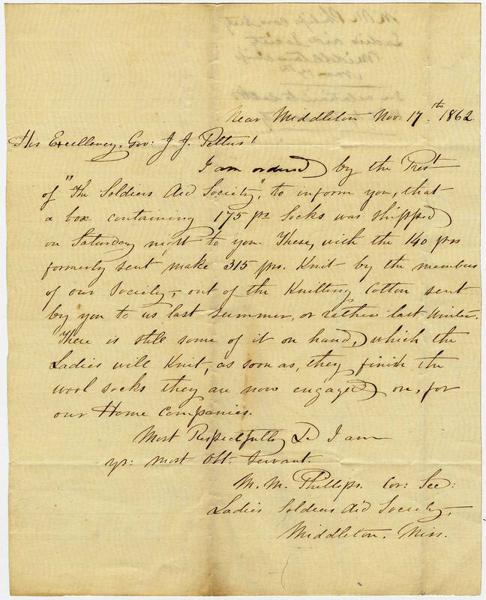 Near Middleton Nov. 17.th 1862
His Excellency, Gov: J. J. Pettus!
I am ordered by the Prest
of "The Soldiers Aid Society," to inform you, that
a box containing 175 prs Socks was shipped
on Saturday night to you. These, with the 140 prs
formerly sent make 315 prs. Knit by the members
of our Society, out of the Knitting Cotton sent
by you to us last Summer, or rather last Winter.
There is still some of it on hand, which the
Ladies will Knit, as soon as, they finish the
wool socks they are now engaged on, for
our Home Companies.
Most Respectfully &c I am
yr: most Obt. Servant.
M. M. Phillips. Cor: Sec:
Ladies Soldiers Aid Society,
Middleton. Miss.